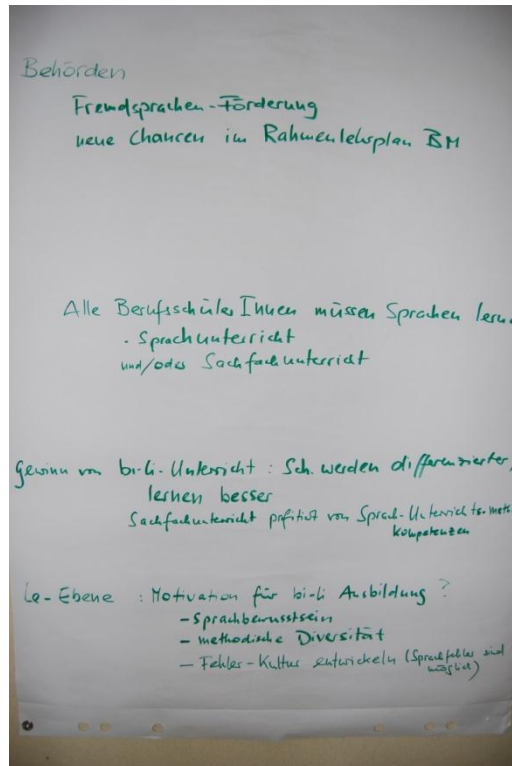 Behörden
Fremdsprachen-Förderung
neue Chancen im Rahmenlehrplan BM
Alle BerufsschülerInnen müssen Sprachen lern
. Sprachunterricht
und/oder Sachfachunterricht
Gewinn von bi-li-Unterricht : Sch. werden differenzierter,
lernen besser
Sachfachunterricht profitiert von Sprach-Unterrichts-meth.
kompetenzen
Le-Ebene : Motivation für bi-li Ausbildung ?
- Sprachbewusstsein
- methodische Diversität
- Fehler-Kultur entwickeln (Sprachfehler sind
möglich)